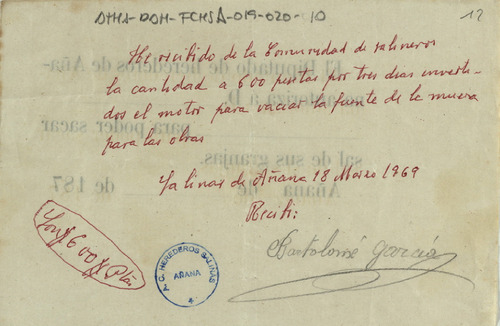 DTHA-DOH-FCHSA-019-020-10
12
He recibido de la Comunidad de salineros
la cantidad a 600 pesetas por tres dias inverti-
dos el motor para vaciar la fuente de la muera
para las obras
Salinas de Añana 18 Marzo 1969
Recibi:
Bartolomé García
Son # 600 # Ptas
A. C. HEREDEROS SALINAS
AÑANA
El Diputado de herederos de Aña-
autoriza a D.
para poder sacar
sal de sus granjas.
Añana de de 187